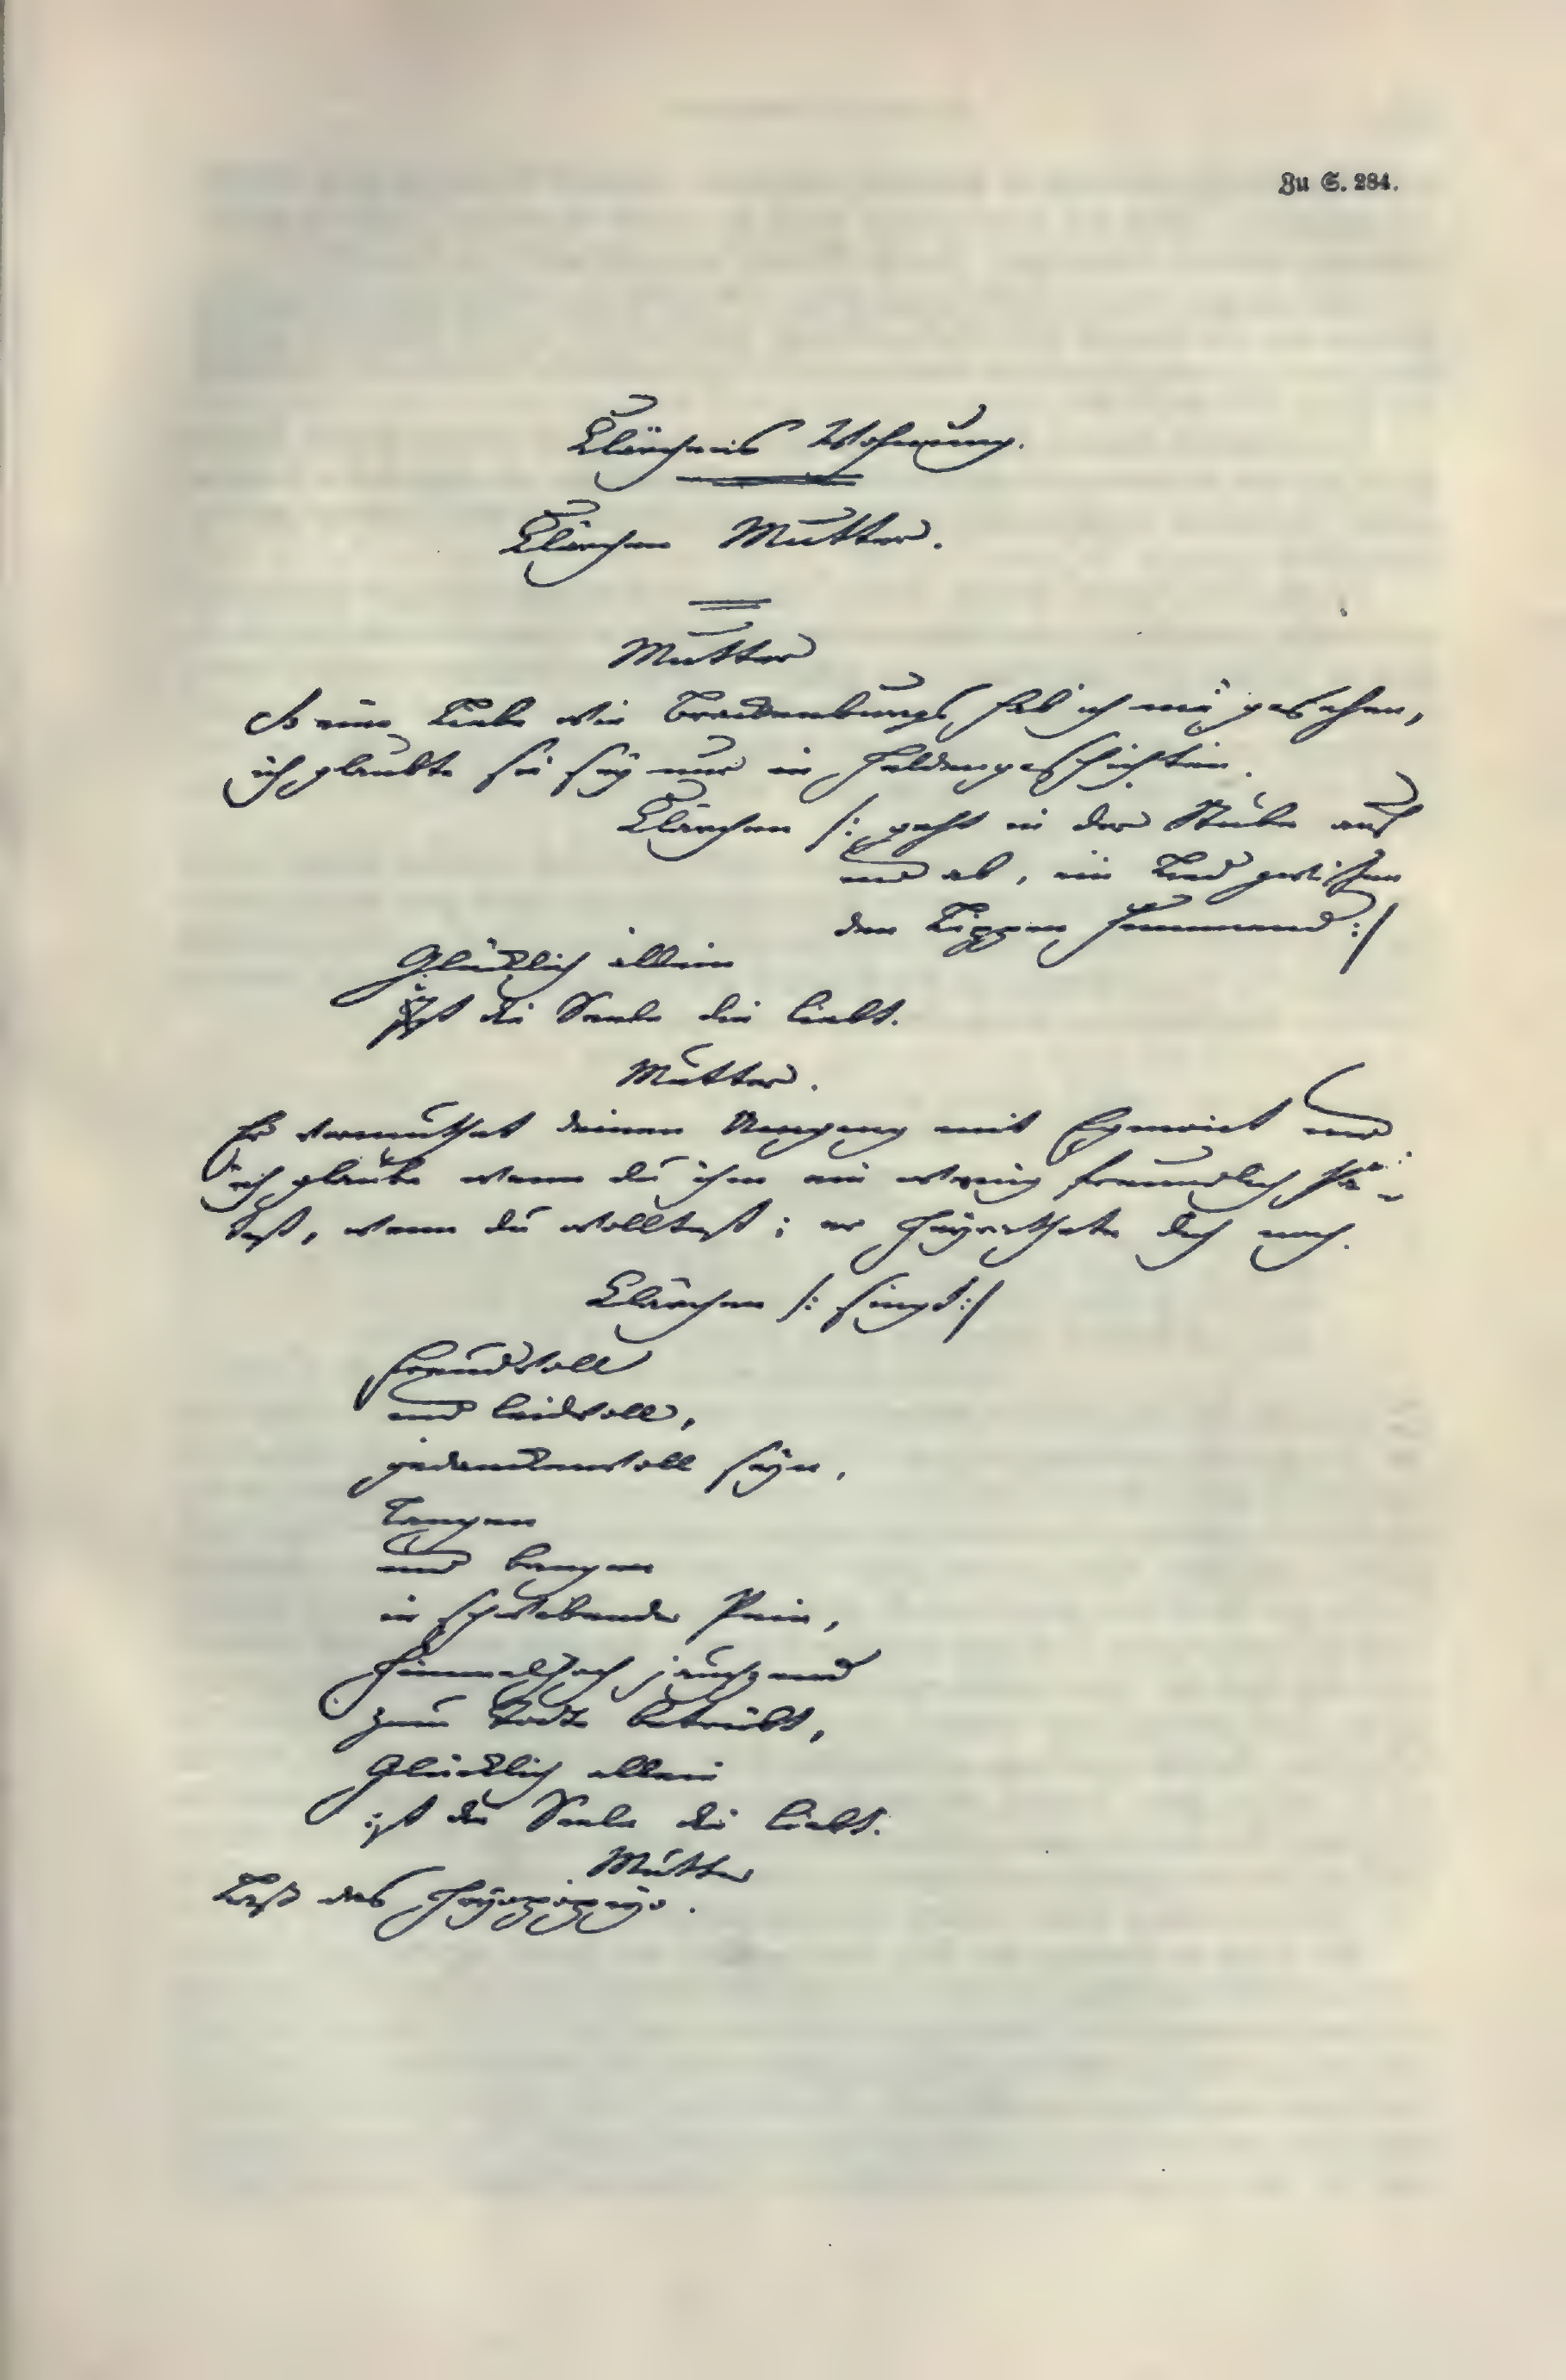 Zu S. 284.
Klärchens Wohnung.
Klärchen Mutter.
Mutter
So eine Liebe wie Brackenburgs hab ich nie gesehen,
ich glaubte sie sey nur in Heldengeschichten.
Klärchen /: geht in der Stube auf
und ab, ein Lied zwischen
den Lippen summend :/
Glücklich allein
ist die Seele die liebt.
Mutter.
Er vermuthet deinen Umgang mit Egmont und
ich glaube wenn du ihm ein wenig freundlich thä-
test, wenn du wolltest; er heyrathete dich noch.
Klärchen /: singt :/
Freudvoll
und leidvoll,
gedanckenvoll seyn,
Langen
und bangen
in schwebender Pein,
Himmelhoch jauchzend
zum Todte betrübt,
Glücklich allein
ist die Seele die liebt.
Mutter
Laß das Heyopopeyo.